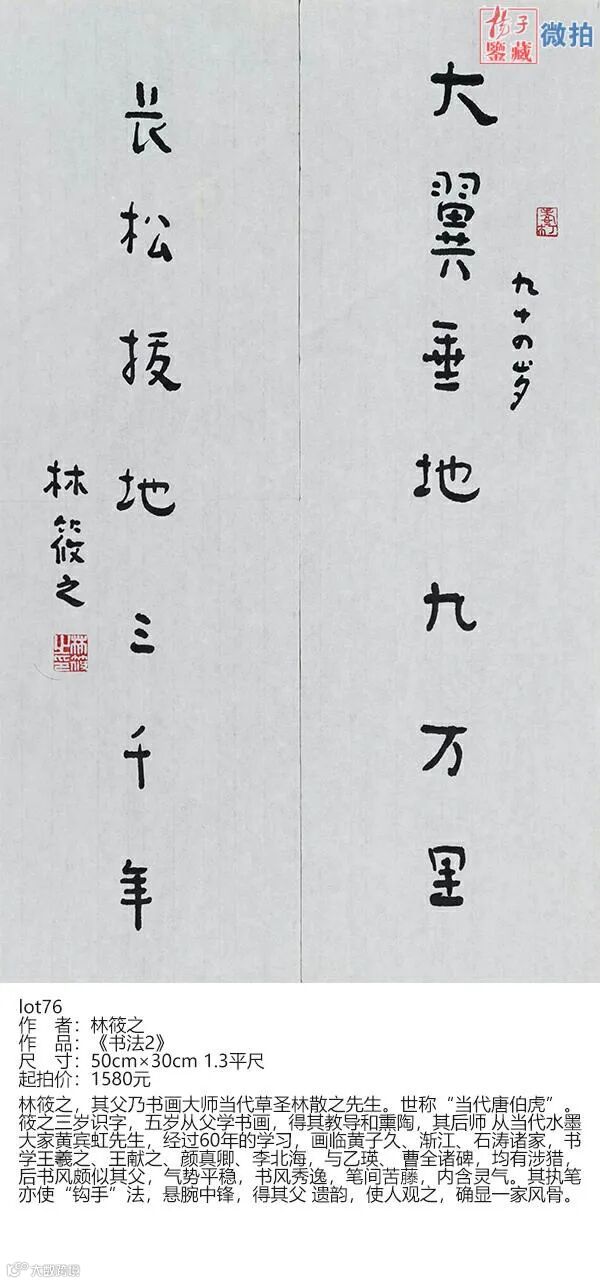 扬子
鉴藏
微拍
大翼垂地九万里
九十の岁
长松拔地三千年
林筱之
林筱之印
lot76
作　者：林筱之
作　品：《书法2》
尺　寸：50cm×30cm 1.3平尺
起拍价：1580元
林筱之，其父乃书画大师当代草圣林散之先生。世称“当代唐伯虎”。
筱之三岁识字，五岁从父学书画，得其教导和熏陶，其后师 从当代水墨
大家黄宾虹先生，经过60年的学习，画临黄子久、渐江、石涛诸家，书
学王羲之、王献之、颜真卿、李北海，与乙瑛、曹全诸碑，均有涉猎，
后书风颇似其父，气势平稳，书风秀逸，笔间苦藤，内含灵气。其执笔
亦使“钩手”法，悬腕中锋，得其父 遗韵，使人观之，确显一家风骨。
大数跨境